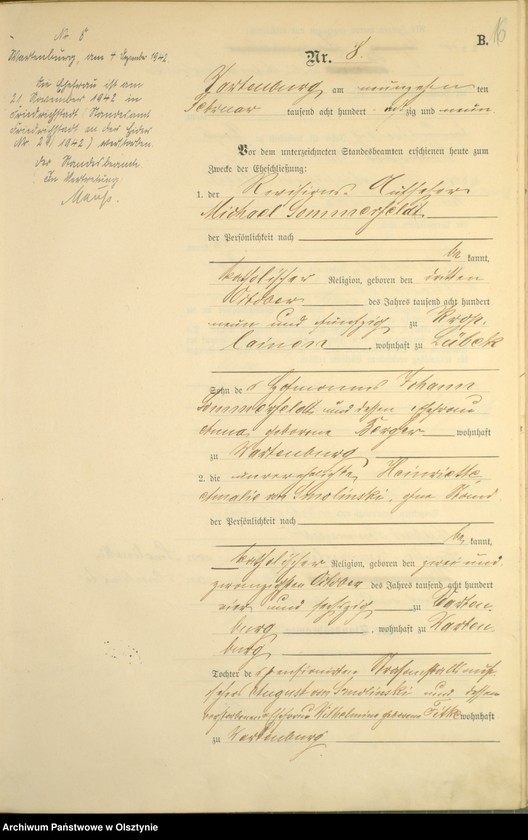 No. 8
Wartenburg, am 7 Dezember 1942
Die Ehefrau ist am
21. November 1942 in
Friedrichstadt Standesamt
Friedrichstadt an der Eider
Nr. 29/1942) verstorben.
Der Standesbeamte
In Vertretung
B. 16
Nr. 8.
Wartenburg am neunzehn ten
Februar tausend acht hundert achtzig und neun
Vor dem unterzeichneten Standesbeamten erschienen heute zum
Zwecke der Eheschließung:
1. der Revisions-Aufseher
Michael Sommerfeldt
der Persönlichkeit nach
be kannt,
katholischer Religion, geboren den dritten
Oktober des Jahres tausend acht hundert
neun und fünfzig zu
wohnhaft zu Lübeck
Sohn de s Johann
Sommerfeldt und dessen Ehefrau
Anna geborene Berger wohnhaft
zu Wartenburg
2. die unverehelichte Henriette
Amalie von Smolinski, ohne Stand
der Persönlichkeit nach
be kannt,
katholischer Religion, geboren den zwei und
zwanzigsten Oktober des Jahres tausend acht hundert
vier und sechzig zu Warten
burg wohnhaft zu Warten
burg
Tochter de s pensionirten Strafanstaltsauf
sehers August von Smolinski und dessen
verstorbenen Ehefrau Wilhelmine geborene wohnhaft
zu Wartenburg
Archiwum Państwowe w Olsztynie